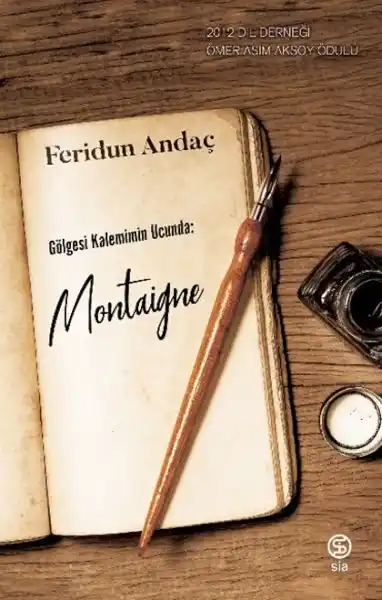 2012 DİL DERNEĞİ
ÖMER ASIM AKSOY ÖDÜLÜ
Feridun Andaç
Gölgesi Kalemimin Ucunda:
Montaigne
sia